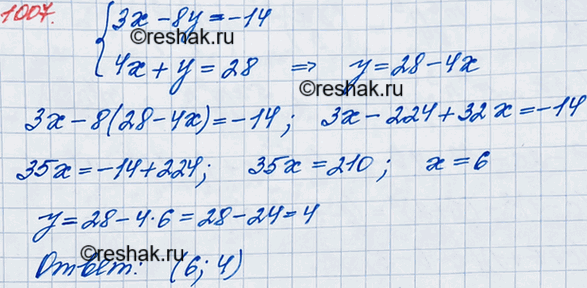 1007.
{3x - 8y = -14
©reshak.ru
4x + y = 28 ⇒ y = 28 - 4x
3x - 8(28 - 4x) = -14; 3x - 224 + 32x = -14
35x = -14 + 224; 35x = 210; x = 6
y = 28 - 4·6 = 28 - 24 = 4
©reshak.ru
Ответ: (6; 4)